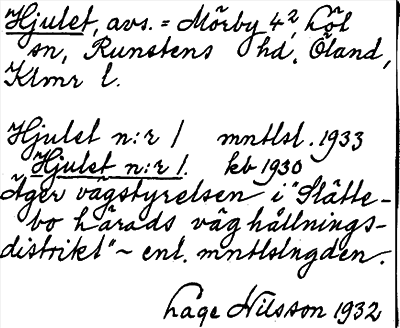 Hjulet, avs. = Mörby 4², Höl
sn, Runstens hd, Öland,
Klmr l.
Hjulet n:r 1 mntlsl. 1933
Hjulet n:r 1. kb 1930
Äger vägstyrelsen i "Slätte-
bo härads väghållnings-
distrikt" ~ enl. mntlslngden.
Låge Nilsson 1932